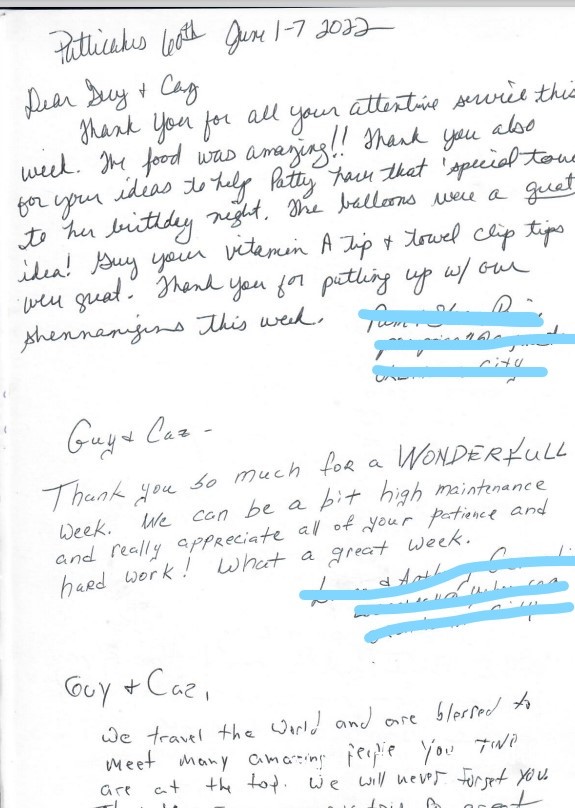 Patticakes 60th June 1-7 2022
Dear Guy + Caz
Thank you for all your attentive service this
week. The food was amazing!! Thank you also
for your ideas to help Patty have that 'special touc
to her birthday night. The balloons were a great
idea! Guy your vitamin A tip + towel clip tips
were great. Thank you for putting up w/ our
shennanigins this week.
City
Guy + Caz -
Thank you so much for a WONDERFULL
week. We can be a bit high maintenance
and really appreciate all of your patience and
hard work! What a great week.
Guy + Caz,
we travel the world and are blessed to
meet many amazing people you TWO
are at the top. we will never forget you